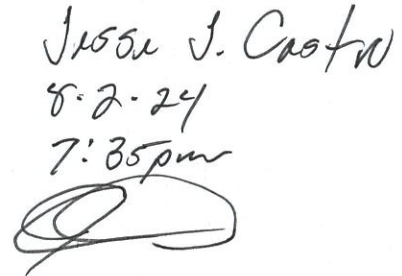 Jesse J. Castro
8-2-24
7:35pm